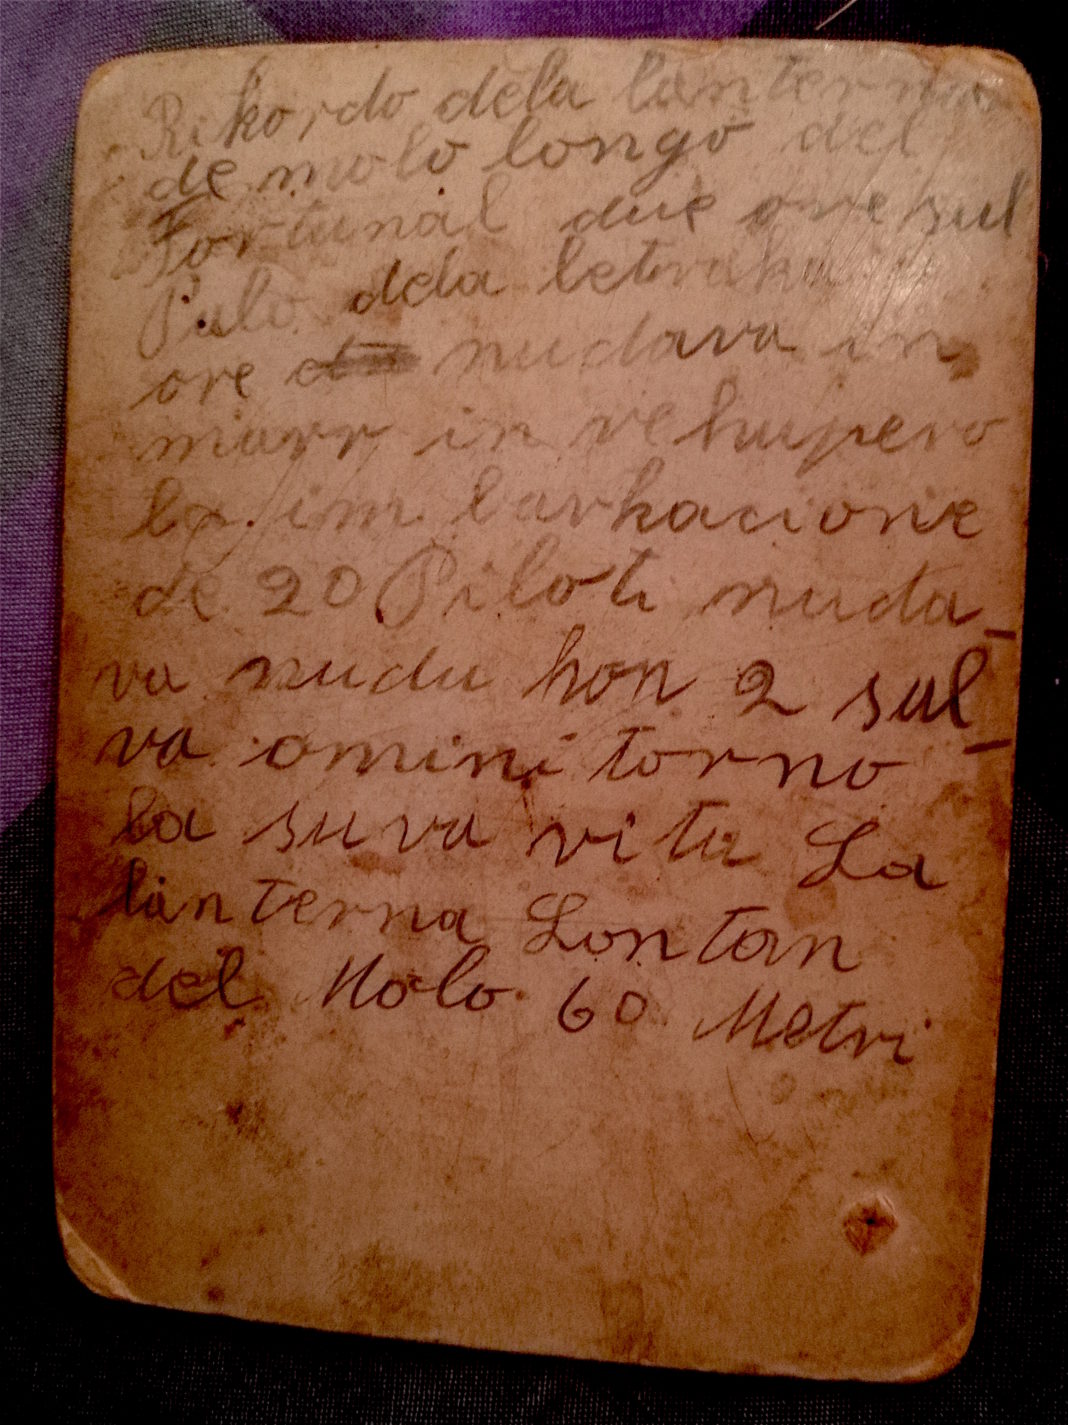 Rikordo dela lanterna
de molo longo del
Fortunal due ore sul
Palo dela letrika
ore nudava in
marr in rekupero
la im barkacione
de 20 Piloti nuda_
va nudu kon 2 sal_
va omini torno
la suva vita La
lanterna Lontan
del Molo 60 Metri